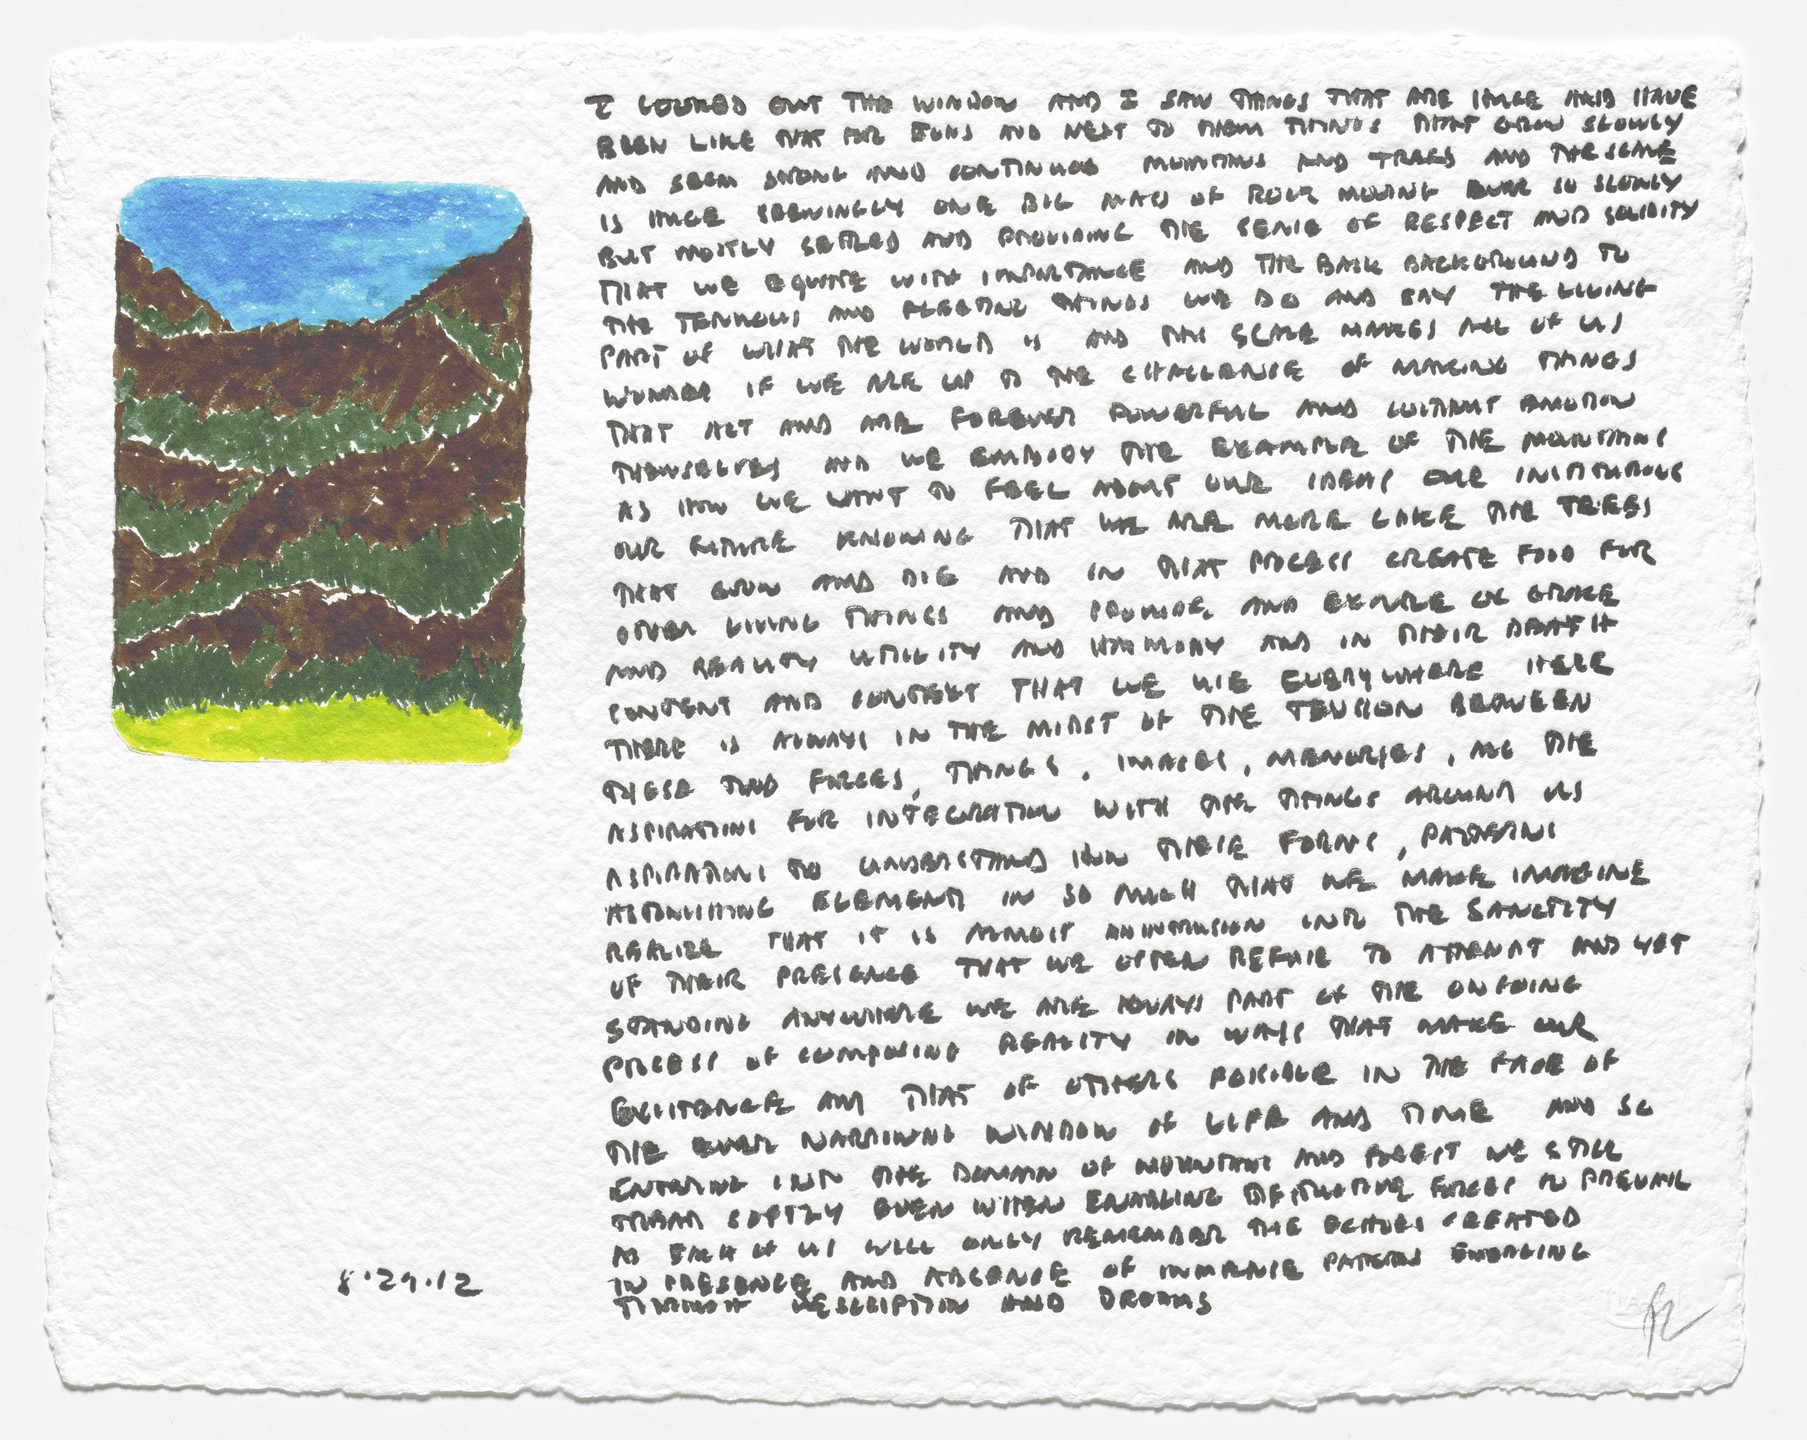 I LOOKED OUT THE WINDOW AND I SAW THINGS THAT ARE HUGE AND HAVE
BEEN LIKE THAT FOR EONS AND NEXT TO THEM THINGS THAT GROW SLOWLY
AND SEEM STRONG AND CONTINUOUS MOUNTAINS AND TREES AND THE SCALE
IS HUGE SEEMINGLY ONE BIG MASS OF ROCK MOVING EVER SO SLOWLY
BUT MOSTLY SETTLED AND PROVIDING THE SENSE OF RESPECT AND SOLIDITY
THAT WE EQUATE WITH IMPORTANCE AND THE BASIC BACKGROUND TO
THE TENUOUS AND FLEETING THINGS WE DO AND SAY THE LIVING
PART OF WHAT THE WORLD IS AND THIS SCALE MAKES ALL OF US
WONDER IF WE ARE UP TO THE CHALLENGE OF MAKING THINGS
THAT ACT AND ARE FOREVER POWERFUL AND WITHOUT EMOTION
THEMSELVES AND WE EMBODY THE EXAMPLE OF THE MOUNTAINS
AS HOW WE WANT TO FEEL ABOUT OUR IDEAS OUR INSTITUTIONS
OUR FUTURE KNOWING THAT WE ARE MORE LIKE THE TREES
THAT GROW AND DIE AND IN THAT PROCESS CREATE FOOD FOR
OTHER LIVING THINGS AND PROVIDE AND EXAMPLE OF GRACE
AND BEAUTY UTILITY AND HARMONY AND IN THEIR DEATH
CONTENT AND CONTEXT THAT WE USE EVERYWHERE HERE
THERE IS ALWAYS IN THE MIDST OF THE TENSION BETWEEN
THESE TWO FORCES, THINGS, IMAGES, MEMORIES, ALL THE
ASPIRATIONS FOR INTEGRATION WITH THE THINGS AROUND US
ASPIRATIONS TO UNDERSTAND HOW THESE FORMS, PATTERNS
ASTONISHING ELEMENTS IN SO MUCH THAT WE MAKE IMAGINE
REALIZE THAT IT IS ALMOST AN INTRUSION INTO THE SANCTITY
OF THEIR PRESENCE THAT WE OFTEN REFUSE TO ATTEMPT AND YET
STANDING ANYWHERE WE ARE ALWAYS PART OF THE ONGOING
PROCESS OF COMPOSING REALITY IN WAYS THAT MAKE OUR
EXISTENCE AND THAT OF OTHERS POSSIBLE IN THE FACE OF
THE EVER NARROWING WINDOW OF LIFE AND TIME AND SO
ENTERING INTO THE DOMAIN OF MOUNTAINS AND FOREST WE STILL
TREAD SOFTLY EVEN WHEN ENABLING DESTRUCTIVE FORCES TO PREVAIL
AS EACH OF US WILL ONLY REMEMBER THE ECHOES CREATED
IN PRESENCE AND ABSENCE OF IMMENSE PATTERNS EMERGING
THROUGH DESCRIPTION AND DREAMS
8.29.12